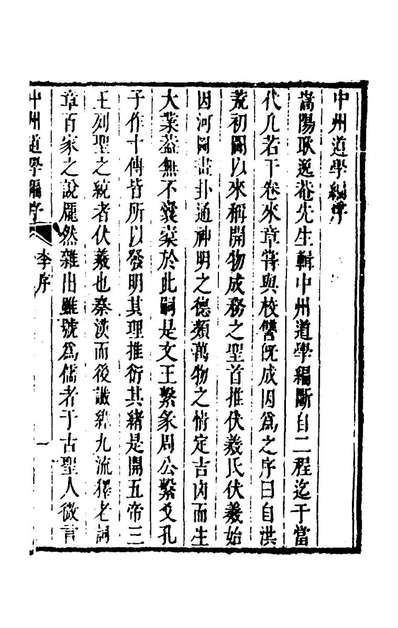 中州道學編序
嵩陽耿逸菴先生輯中州道學編斷自二程迄于當
代凡若干卷來章嘗與校讐旣成因爲之序曰自洪
荒初闢以來稱開物成務之聖首推伏羲氏伏羲始
因河圖畫卦通神明之德類萬物之情定吉凶而生
大業蓋無不彙䝉於此嗣是文王繫彖周公繫爻孔
子作十傳皆所以發明其理推衍其緒是開五帝三
王列聖之統者伏羲也秦漢而後讖緯九流釋老詞
章百家之說龐然雜出雖號爲儒者于古聖人微言
中州道學編序
李序
一